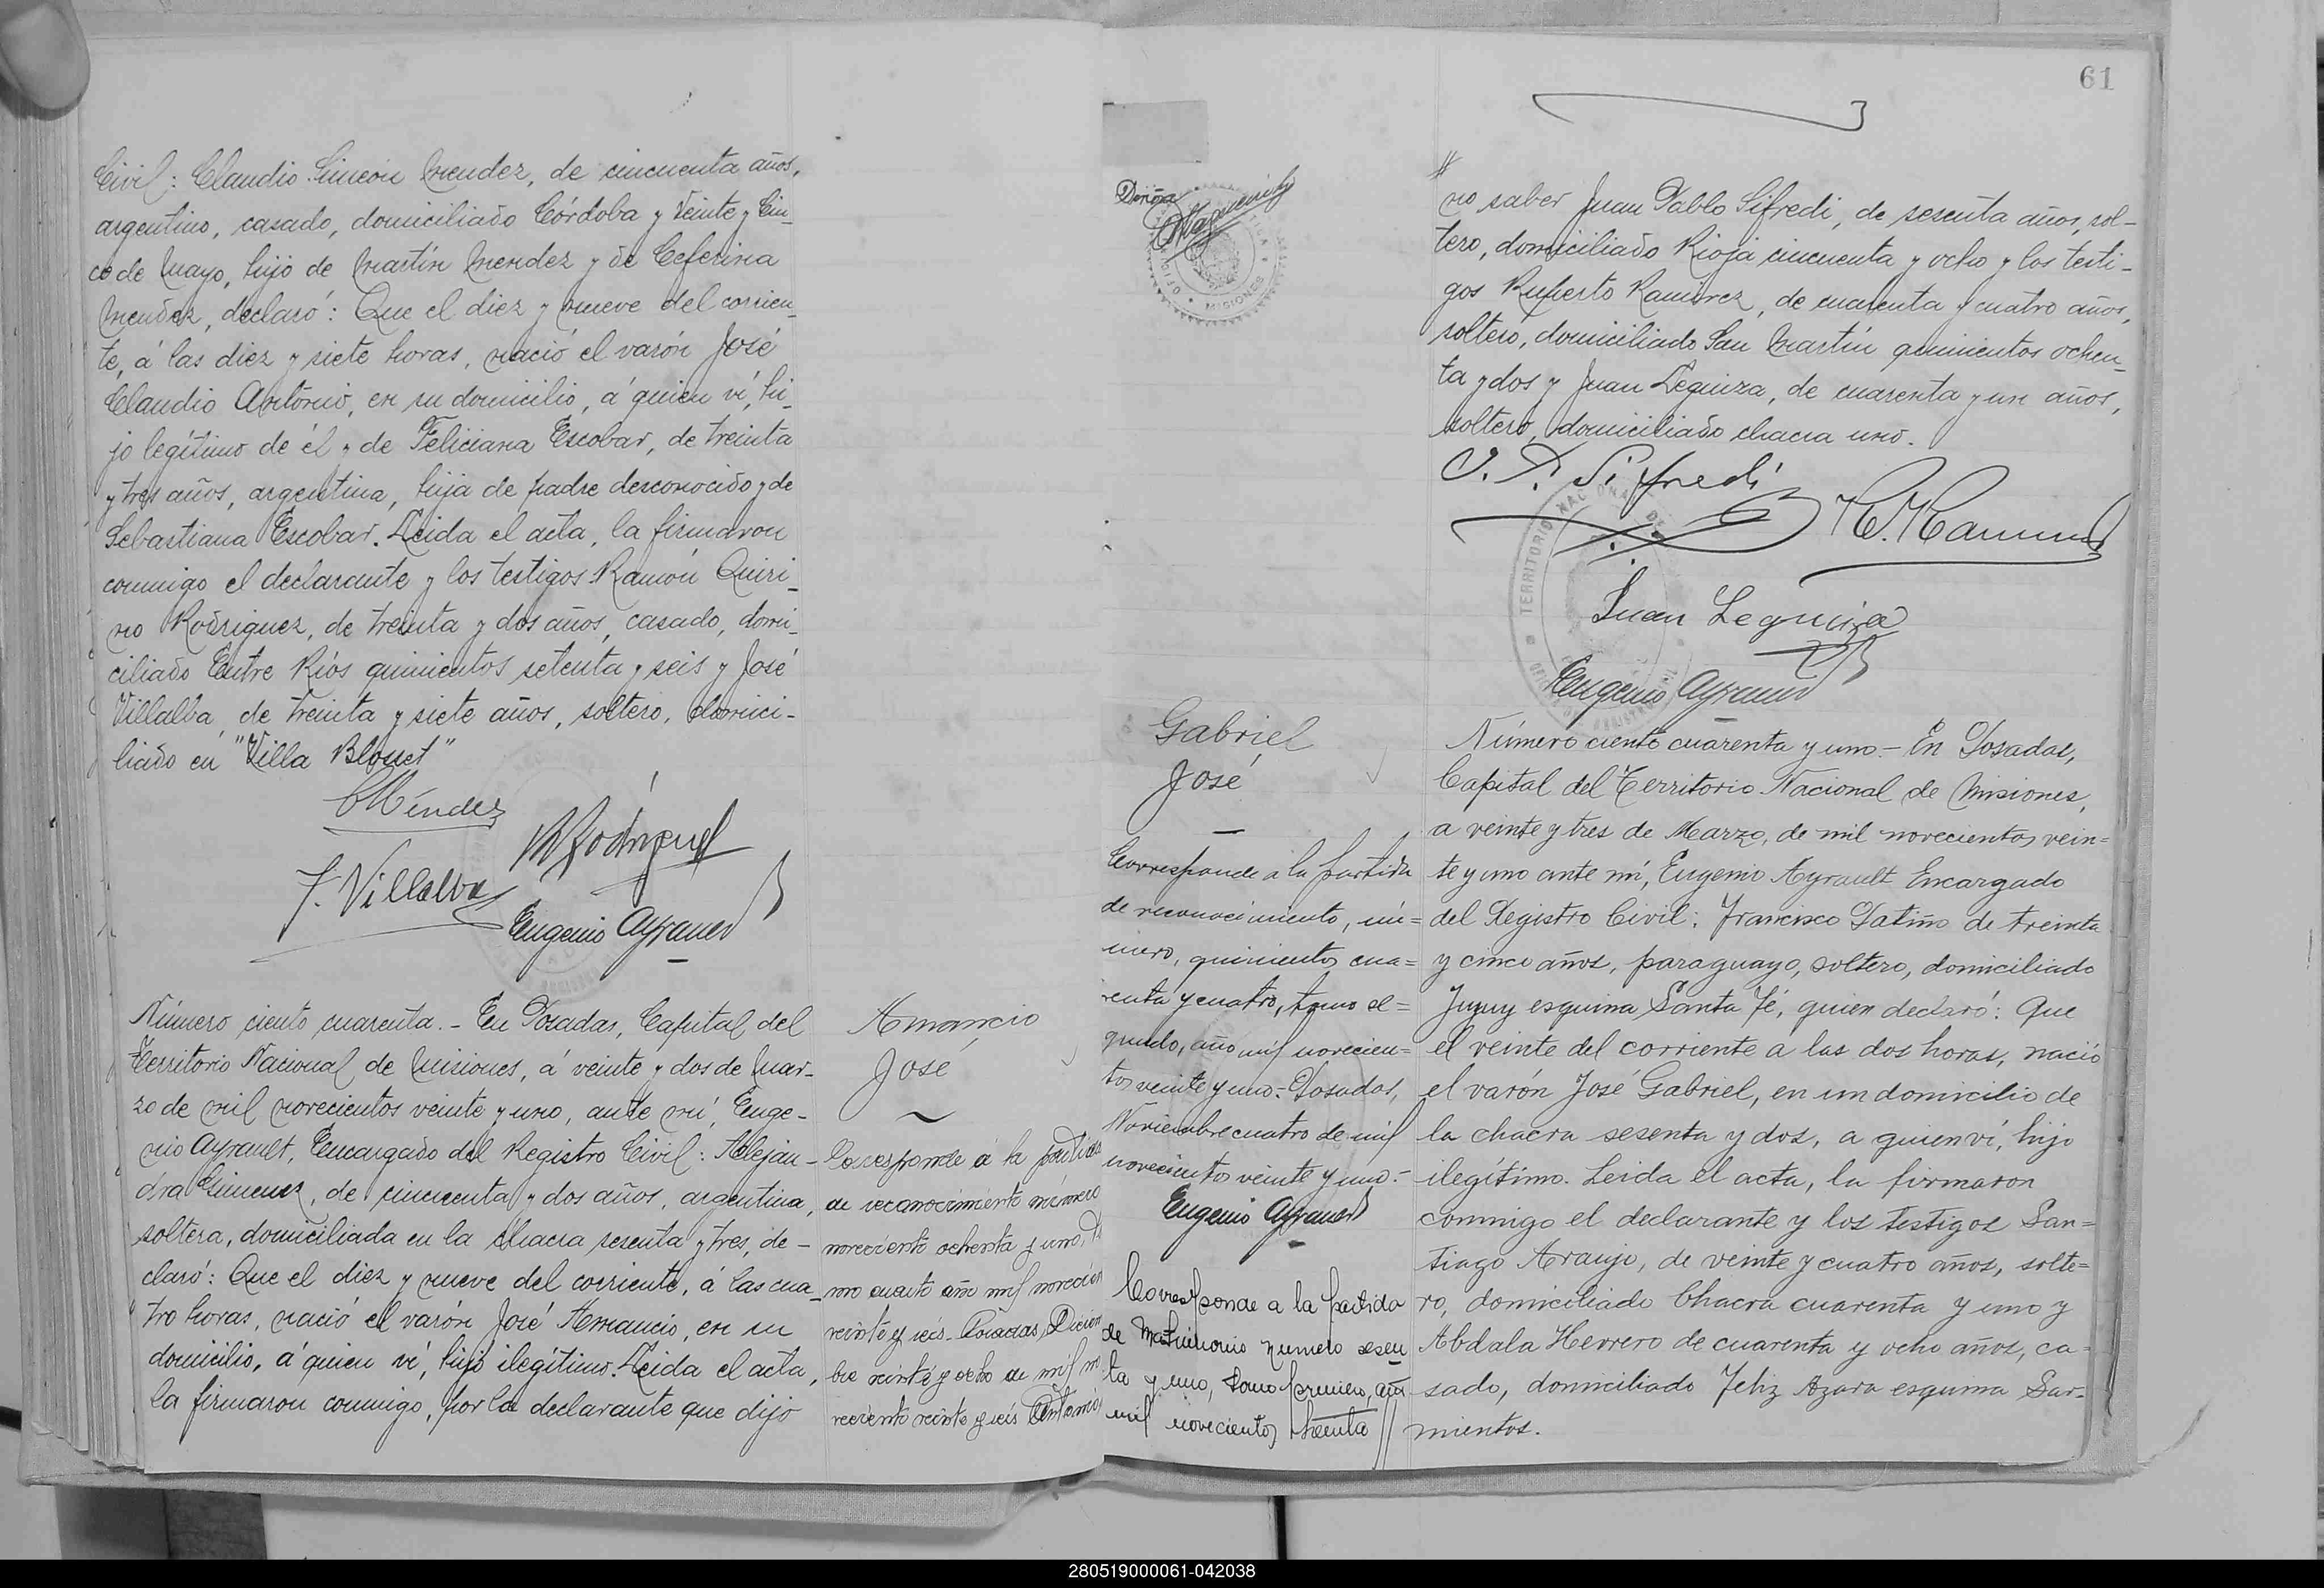 Civil: Claudio Simeón Mendez, de cincuenta años,
argentino, casado, domiciliado Córdoba y Veinte y Cin-
co de Mayo, hijo de Martín Mendez y de Ceferina
Mendez, declaró: Que el diez y nueve del corrien-
te, á las diez y siete horas, nació el varón José
Claudio Antonio, en su domicilio, á quien ví, hi-
jo legítimo de él y de Feliciana Escobar, de treinta
y tres años, argentina, hija de padre desconocido y de
Sebastiana Escobar. Leida el acta, la firmaron
conmigo el declarante y los testigos Ramón Quiri-
no Rodriguez, de treinta y dos años, casado, domi-
ciliado Entre Ríos quinientos setenta y seis y José
Villalba, de treinta y siete años, soltero, domici-
liado en "Villa Blosset"
CMéndez
RRodriguez
J. Villalva
Eugenio Ayrault
Número ciento cuarenta.- En Posadas, Capital del
Territorio Nacional de Misiones, á veinte y dos de Mar-
zo de mil novecientos veinte y uno, ante mí, Euge-
nio Ayrault, Encargado del Registro Civil: Alejan-
dra Gimenez, de cincuenta y dos años, argentina,
soltera, domiciliada en la chacra sesenta y tres, de-
claró: Que el diez y nueve del corriente, á las cua-
tro horas, nació el varón José Amancio, en su
domicilio, á quien ví, hijo ilegítimo. Leida el acta,
la firmaron conmigo, por la declarante que dijo
Amancio
José
Corresponde a la partida
de reconocimiento número
novecientos ochenta y uno, to
mo cuarto año mil novecien
veinte y seis. Posadas, Diciem
bre veinte y ocho de mil no
vecientos veinte y seis Antonio
61
MISIONES
//
no saber Juan Pablo Sifredi, de sesenta años, sol-
tero, domiciliado Rioja cincuenta y ocho y los testi-
gos Ruperto Ramirez, de cuarenta y cuatro años,
soltero, domiciliado San Martín quinientos ochen-
ta y dos y Juan Leguiza, de cuarenta y un años,
soltero, domiciliado chacra uno.
J. P. Sifredi
R. Ramirez
TERRITORIO NACIONAL DE
Juan Leguiza
Eugenio Ayrault
Gabriel
José
Corresponde a la partida
de reconocimiento, nú=
mero, quinientos cua=
renta y cuatro, tomo se=
gundo, año mil novecien=
tos veinte y uno.- Posadas,
Noviembre cuatro de mil
novecientos veinte y uno.-
Eugenio Ayrault
Corresponde a la partida
de Matrimonio numero sesen
ta y uno, tomo primero, año
mil novecientos treinta //
Número ciento cuarenta y uno.- En Posadas,
Capital del Territorio Nacional de Misiones,
a veinte y tres de Marzo, de mil novecientos vein=
te y uno ante mí, Eugenio Ayrault Encargado
del Registro Civil: Francisco Patiño de treinta
y cinco años, paraguayo, soltero, domiciliado
Jujuy esquina Santa Fé, quien declaró: Que
el veinte del corriente a las dos horas, nació
el varón José Gabriel, en un domicilio de
la chacra sesenta y dos, a quien ví, hijo
ilegítimo. Leida el acta, la firmaron
conmigo el declarante y los testigos San=
tiago Araujo, de veinte y cuatro años, solte=
ro, domiciliado Chacra cuarenta y uno y
Abdala Herrero de cuarenta y ocho años, ca=
sado, domiciliado Feliz Azara esquina Sar=
mientos.
280519000061-042038